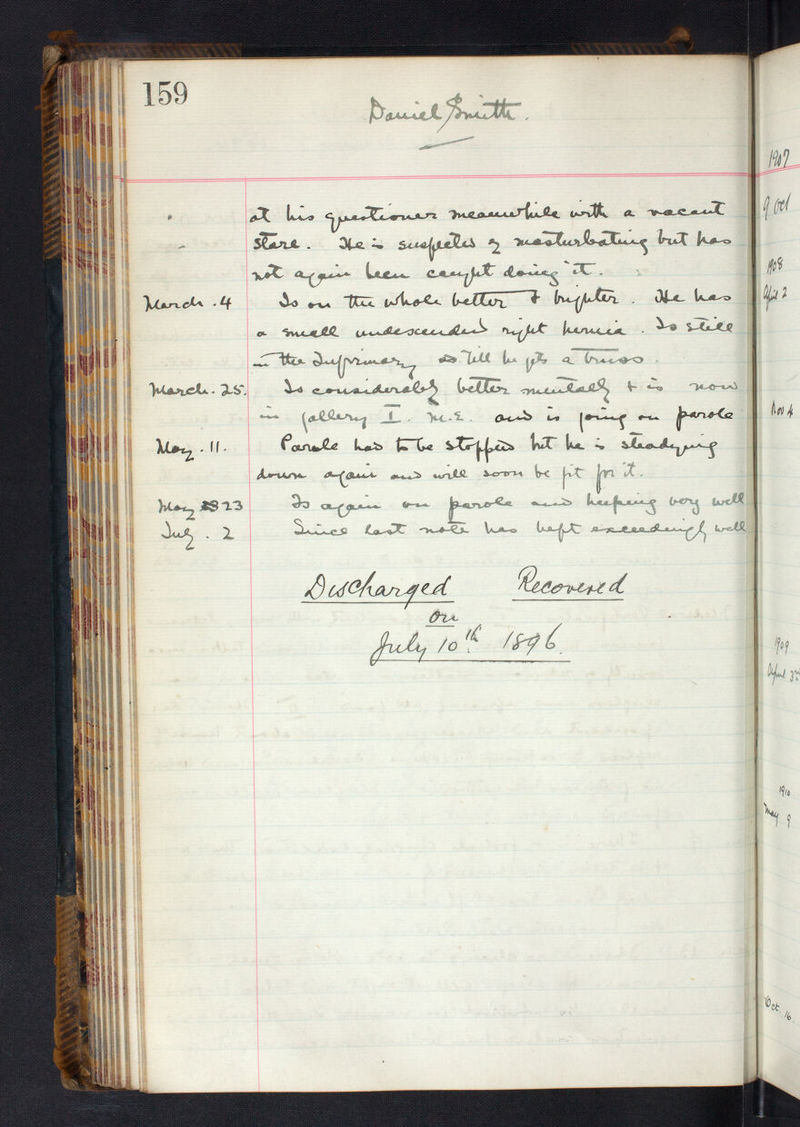 159
Daniel Smith.
at his questioner meanwhile with a vacant
stare. He is suspected of masturbating but has
not again been caught doing it.
March. 4 Is on the whole better & brighter. He has
a small undescended right hernia. Is still
in the Infirmary till he gets a truss.
March. 25. Is considerably better mentally & is now
in gallery I. M.E. and is going on parole
May. 11. Parole had to be stopped but he is steadying
down again and will soon be fit for it.
May 23 Is again on parole and keeping very well
July. 2 Since last note has kept exceedingly well
Discharged Recovered
on
July 10th. 1896.
1907
9 Oct
1908
April 2
Nov 4
1909
April
1910
May 9
Oct 16.